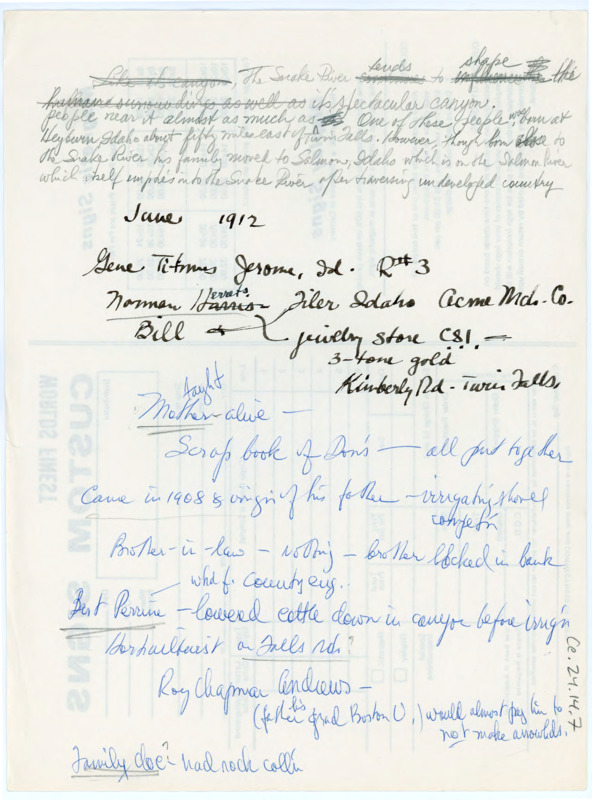 Like its canyon, The Snake River continues tends to influence shape the
human surroundings as well as its spectacular canyon.
people near it almost as much as One of these people was born at
Heyburn, Idaho about fifty miles east of Twin Falls. However, though born close to
the Snake River his family moved to Salmon, Idaho which is on the Salmon River
which itself empties into the Snake River after traversing undeveloped country
June 1912
Gene Titmus Jerome, Id. R#3
Norman Harrison Herrets Filer Idaho Acme Mds. Co.
Bill jewelry store CSI. —
3-tone gold
Kimberly Rd - Twin Falls
taught
Mother-alive —
Scrap book of Don's — all put together
Came in 1908 & origin of his father - irrigating shovel
Brother-in-law - nothing - brother blocked in bank
whd f. county eng.
Bert Perrine - lowered cattle down in canyon before irrig'n
Horticulturist on Falls rds?
Roy Chapman Andrews —
(father his grad Boston U.) would almost pay him to
not make arrowhds.
Family doc? had rock coll'n
Ce.24.14.7
CUSTOM SIGNS
WORLDS FINEST